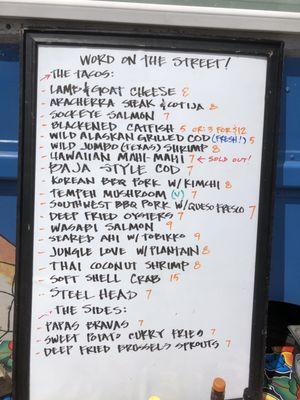 WORD ON THE STREET!
THE TACOS:
- LAMB & GOAT CHEESE 8
- ARACHERRA STEAK & COTIJA 8
- SOCKEYE SALMON 7
- BLACKENED CATFISH 5 OR: 3 FOR $12
- WILD ALASKAN GRILLED COD (FRESH!) 5
- WILD JUMBO (TEXAS) SHRIMP 8
- HAWAIIAN MAHI-MAHI 7 ← SOLD OUT!
- BAJA STYLE COD 7
- KOREAN BBQ PORK W/KIMCHI 8
- TEMPEH MUSHROOM (V) 7
- SOUTHWEST BBQ PORK W/QUESO FRESCO 7
- DEEP FRIED OYSTERS 7
- WASABI SALMON 9
- SEARED AHI W/TOBIKKO 9
- JUNGLE LOVE W/PLANTAIN 8
- THAI COCONUT SHRIMP 8
- SOFT SHELL CRAB 15
- STEEL HEAD 7
THE SIDES:
- PAPAS BRAVAS 7
- SWEET POTATO CURRY FRIES 7
- DEEP FRIED BRUSSELS SPROUTS 7